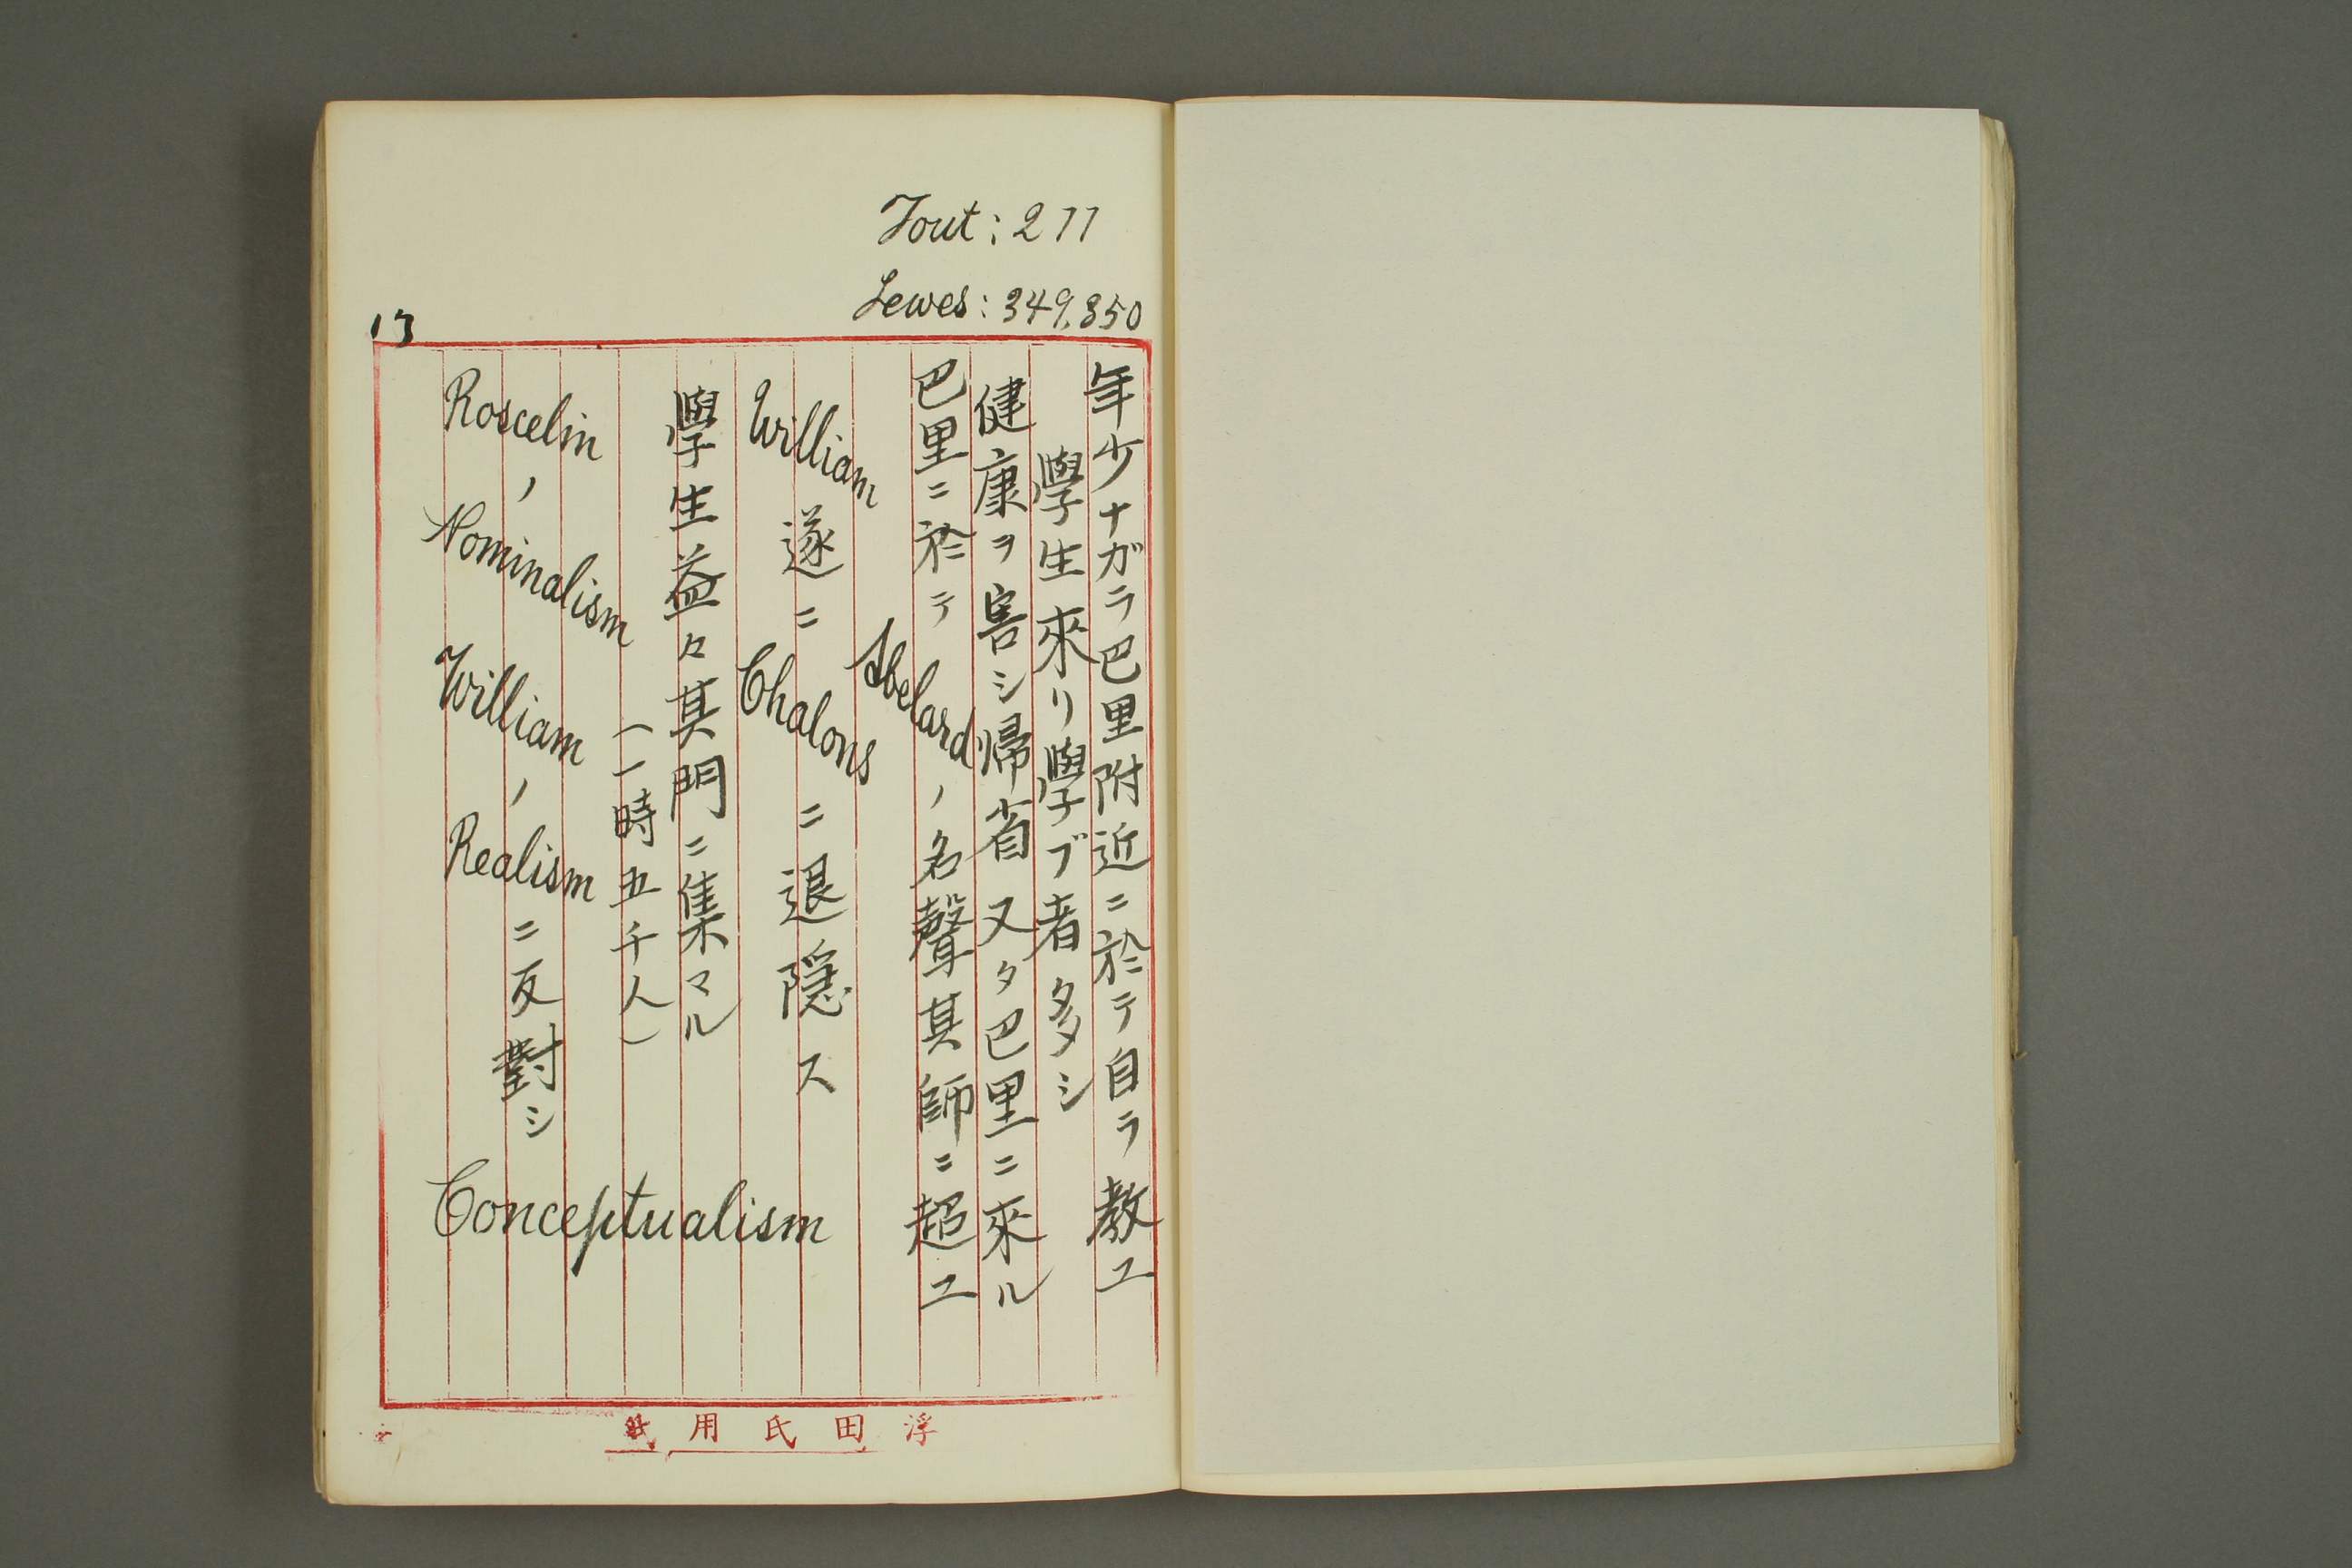 Tout: 277
Lewes: 349,350
13
年少ナガラ巴里附近ニ於テ自ラ教エ
學生來リ學ブ者多シ
健康ヲ害シ帰省又タ巴里ニ來ル
巴里ニ於テ Abelard ノ名聲其師ニ超エ
William 遂ニ Chalons ニ退隠ス
學生益々其門ニ集マル
(一時五千人)
Roscelin ノ Nominalism William ノ Realism ニ反對シ Conceptualism
浮田氏用紙